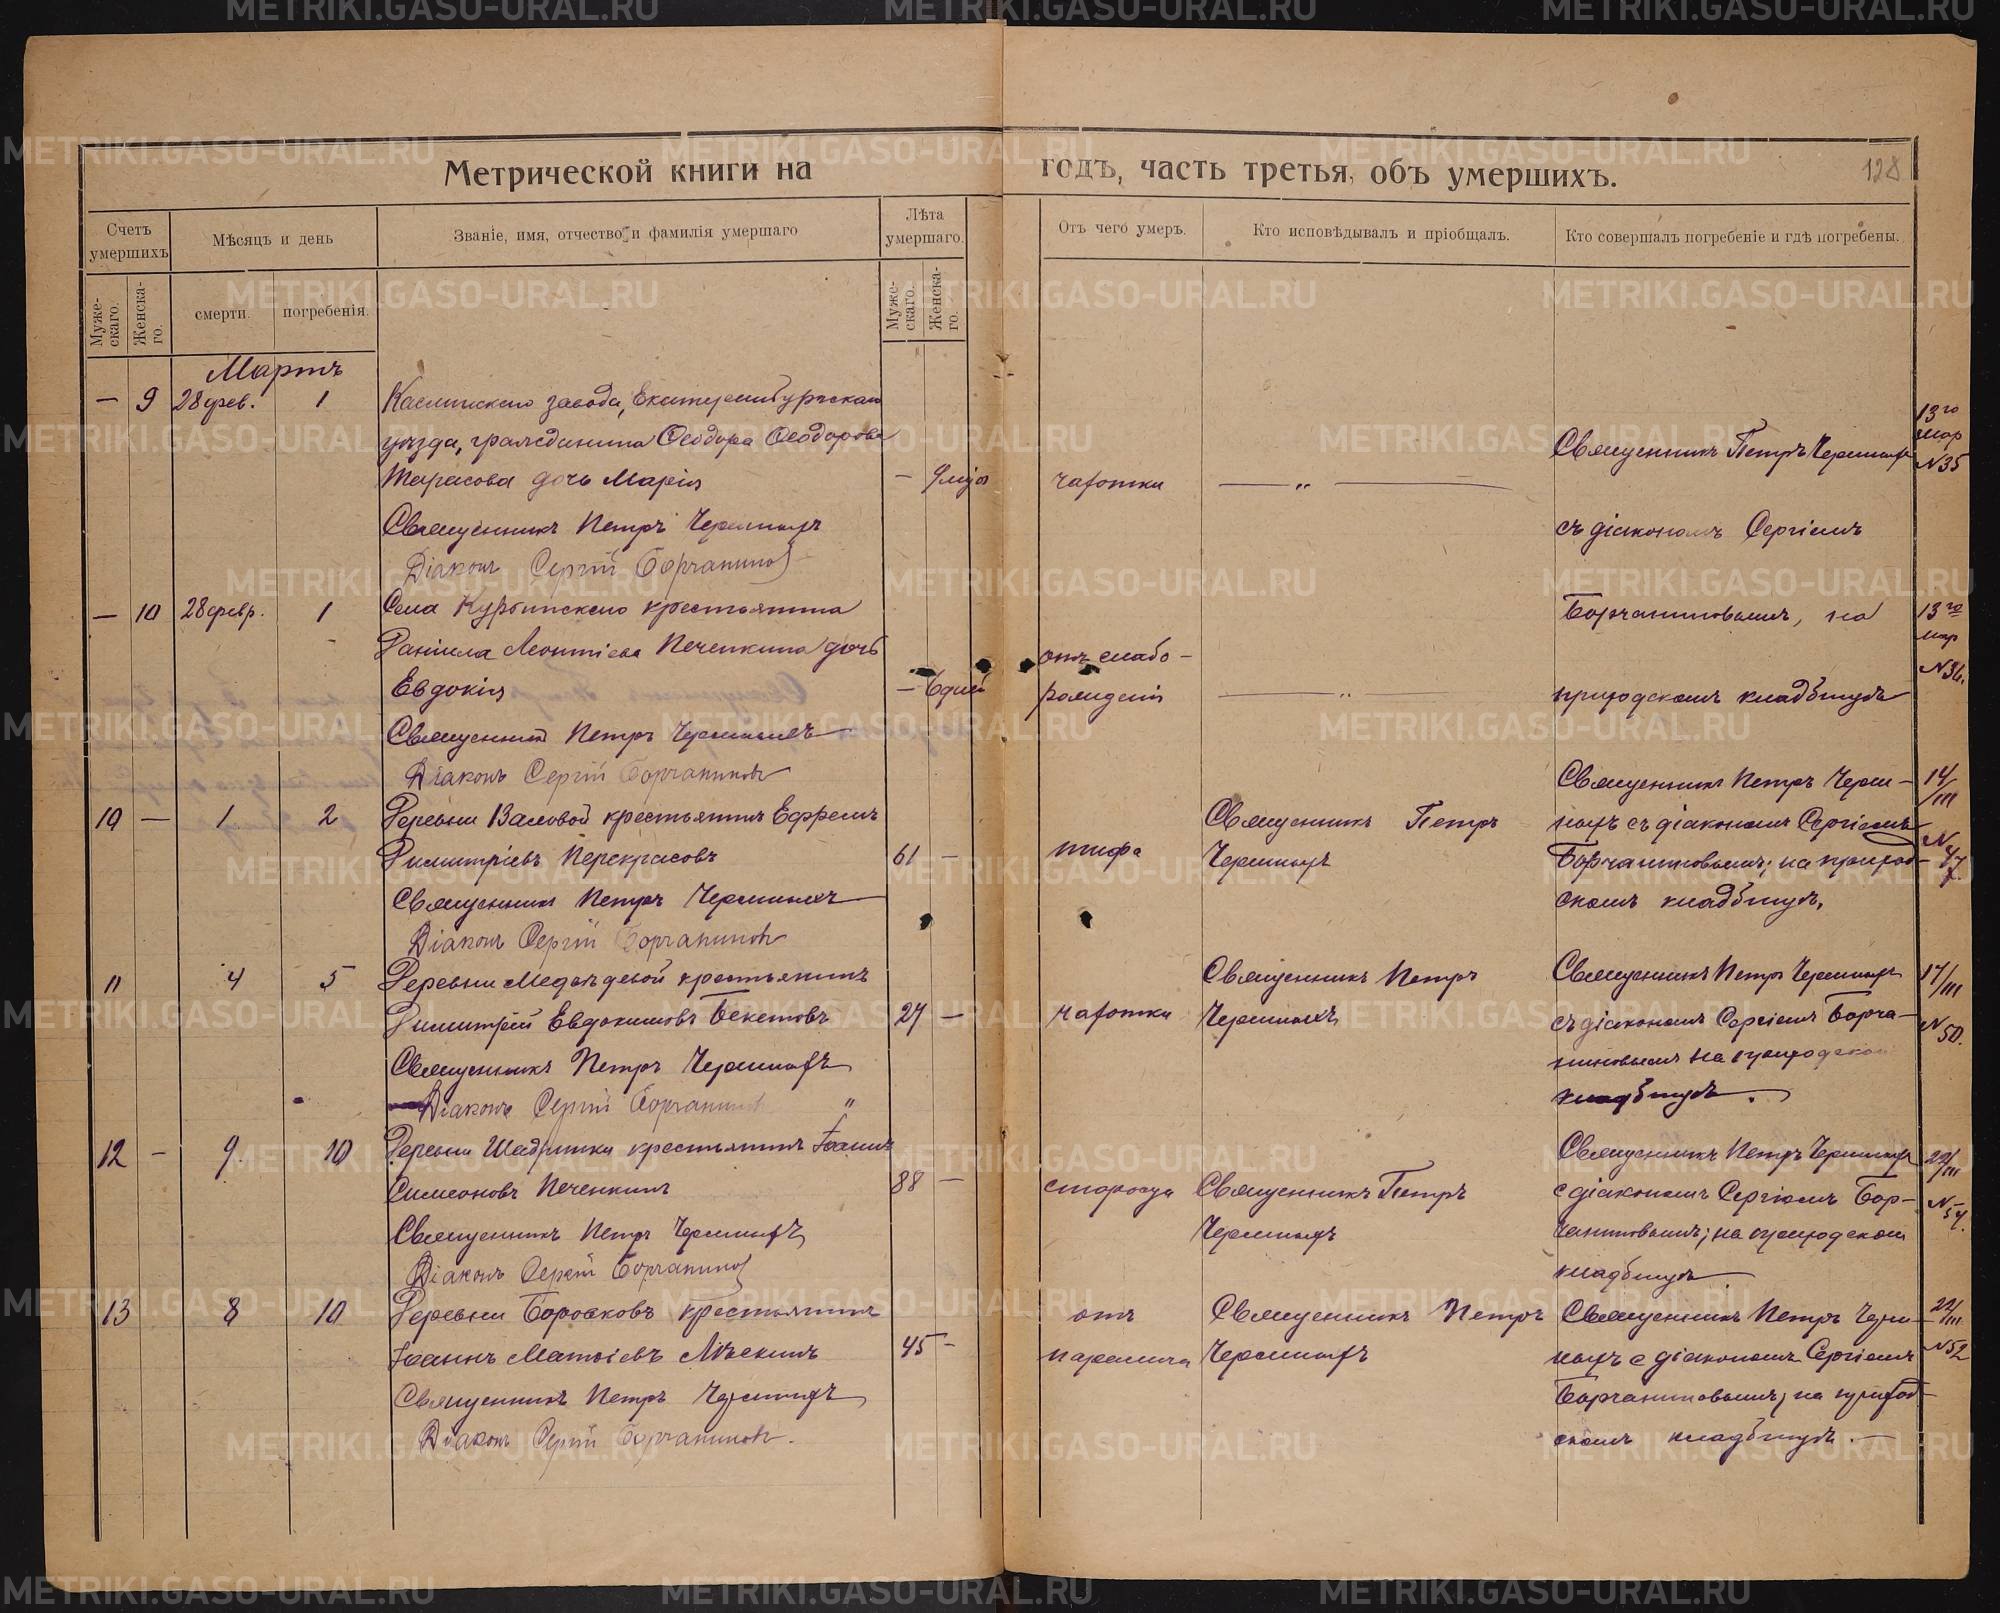 Метрической книги на годъ, часть третья, объ умершихъ.
128
Счетъ умершихъ
Мѣсяцъ и день
Званіе, имя, отчество и фамилія умершаго
Лѣта умершаго.
Отъ чего умеръ.
Кто исповѣдывалъ и пріобщалъ.
Кто совершалъ погребеніе и гдѣ погребены.
Муже-скаго.
Женска-го.
смерти.
погребенія.
Муже-скаго.
Женска-го.
Мартъ
— 9 28 фев. 1
Каслинскаго завода, Екатеринбургскаго
уѣзда, гражданина Ѳеодора Ѳеодорова
Тарасова дочь Марія
—
чахотки
— „ —
Священникъ Петръ
съ діакономъ Сергіемъ
13го
мар
N 35
Священникъ Петръ
Діаконъ Сергій Борчаниновъ
— 10 28 февр. 1
Села крестьянина
Даніила Леонтіева Печенкина дочь
Евдокія
— 6 дней
отъ слабо-
рожденія
— „ —
Борчаниновымъ, на
приходскомъ кладбищѣ
13го
мар
N 36.
Священникъ Петръ
Діаконъ Сергій Борчаниновъ
10 — 1 2
Деревни крестьянинъ Ефремъ
Димитріевъ Перекрасовъ
61 —
тифа
Священникъ Петръ
Священникъ Петръ
съ діакономъ Сергіемъ
Борчаниновымъ; на приход-
скомъ кладбищѣ.
14/III
N 47
Священникъ Петръ
Діаконъ Сергій Борчаниновъ
11 4 5
Деревни Медвѣдевой крестьянинъ
Димитрій Евдокимовъ Бекетовъ
27 —
чахотки
Священникъ Петръ
Священникъ Петръ
съ діакономъ Сергіемъ Борча-
ниновымъ на приходском
кладбищѣ.
17/III
N 50.
Священникъ Петръ
Діаконъ Сергій Борчаниновъ „
12 — 9. 10
Деревни Шабринки крестьянинъ Іоаннъ
Симеоновъ Печенкинъ
88 —
старости
Священникъ Петръ
Священникъ Петръ
с діакономъ Сергіемъ Бор-
чаниновымъ; на приходском
кладбищѣ
22/III
Священникъ Петръ
Діаконъ Сергій Борчаниновъ
13 8 10
Деревни Боровковъ крестьянинъ
Іоаннъ
45 —
отъ
паралича
Священникъ Петръ
Священникъ Петръ
с діакономъ Сергіемъ
Борчаниновымъ; на приход-
скомъ кладбищѣ. —
22/III
N 52
Священникъ Петръ
Діаконъ Сергій Борчаниновъ.
METRIKI.GASO-URAL.RU